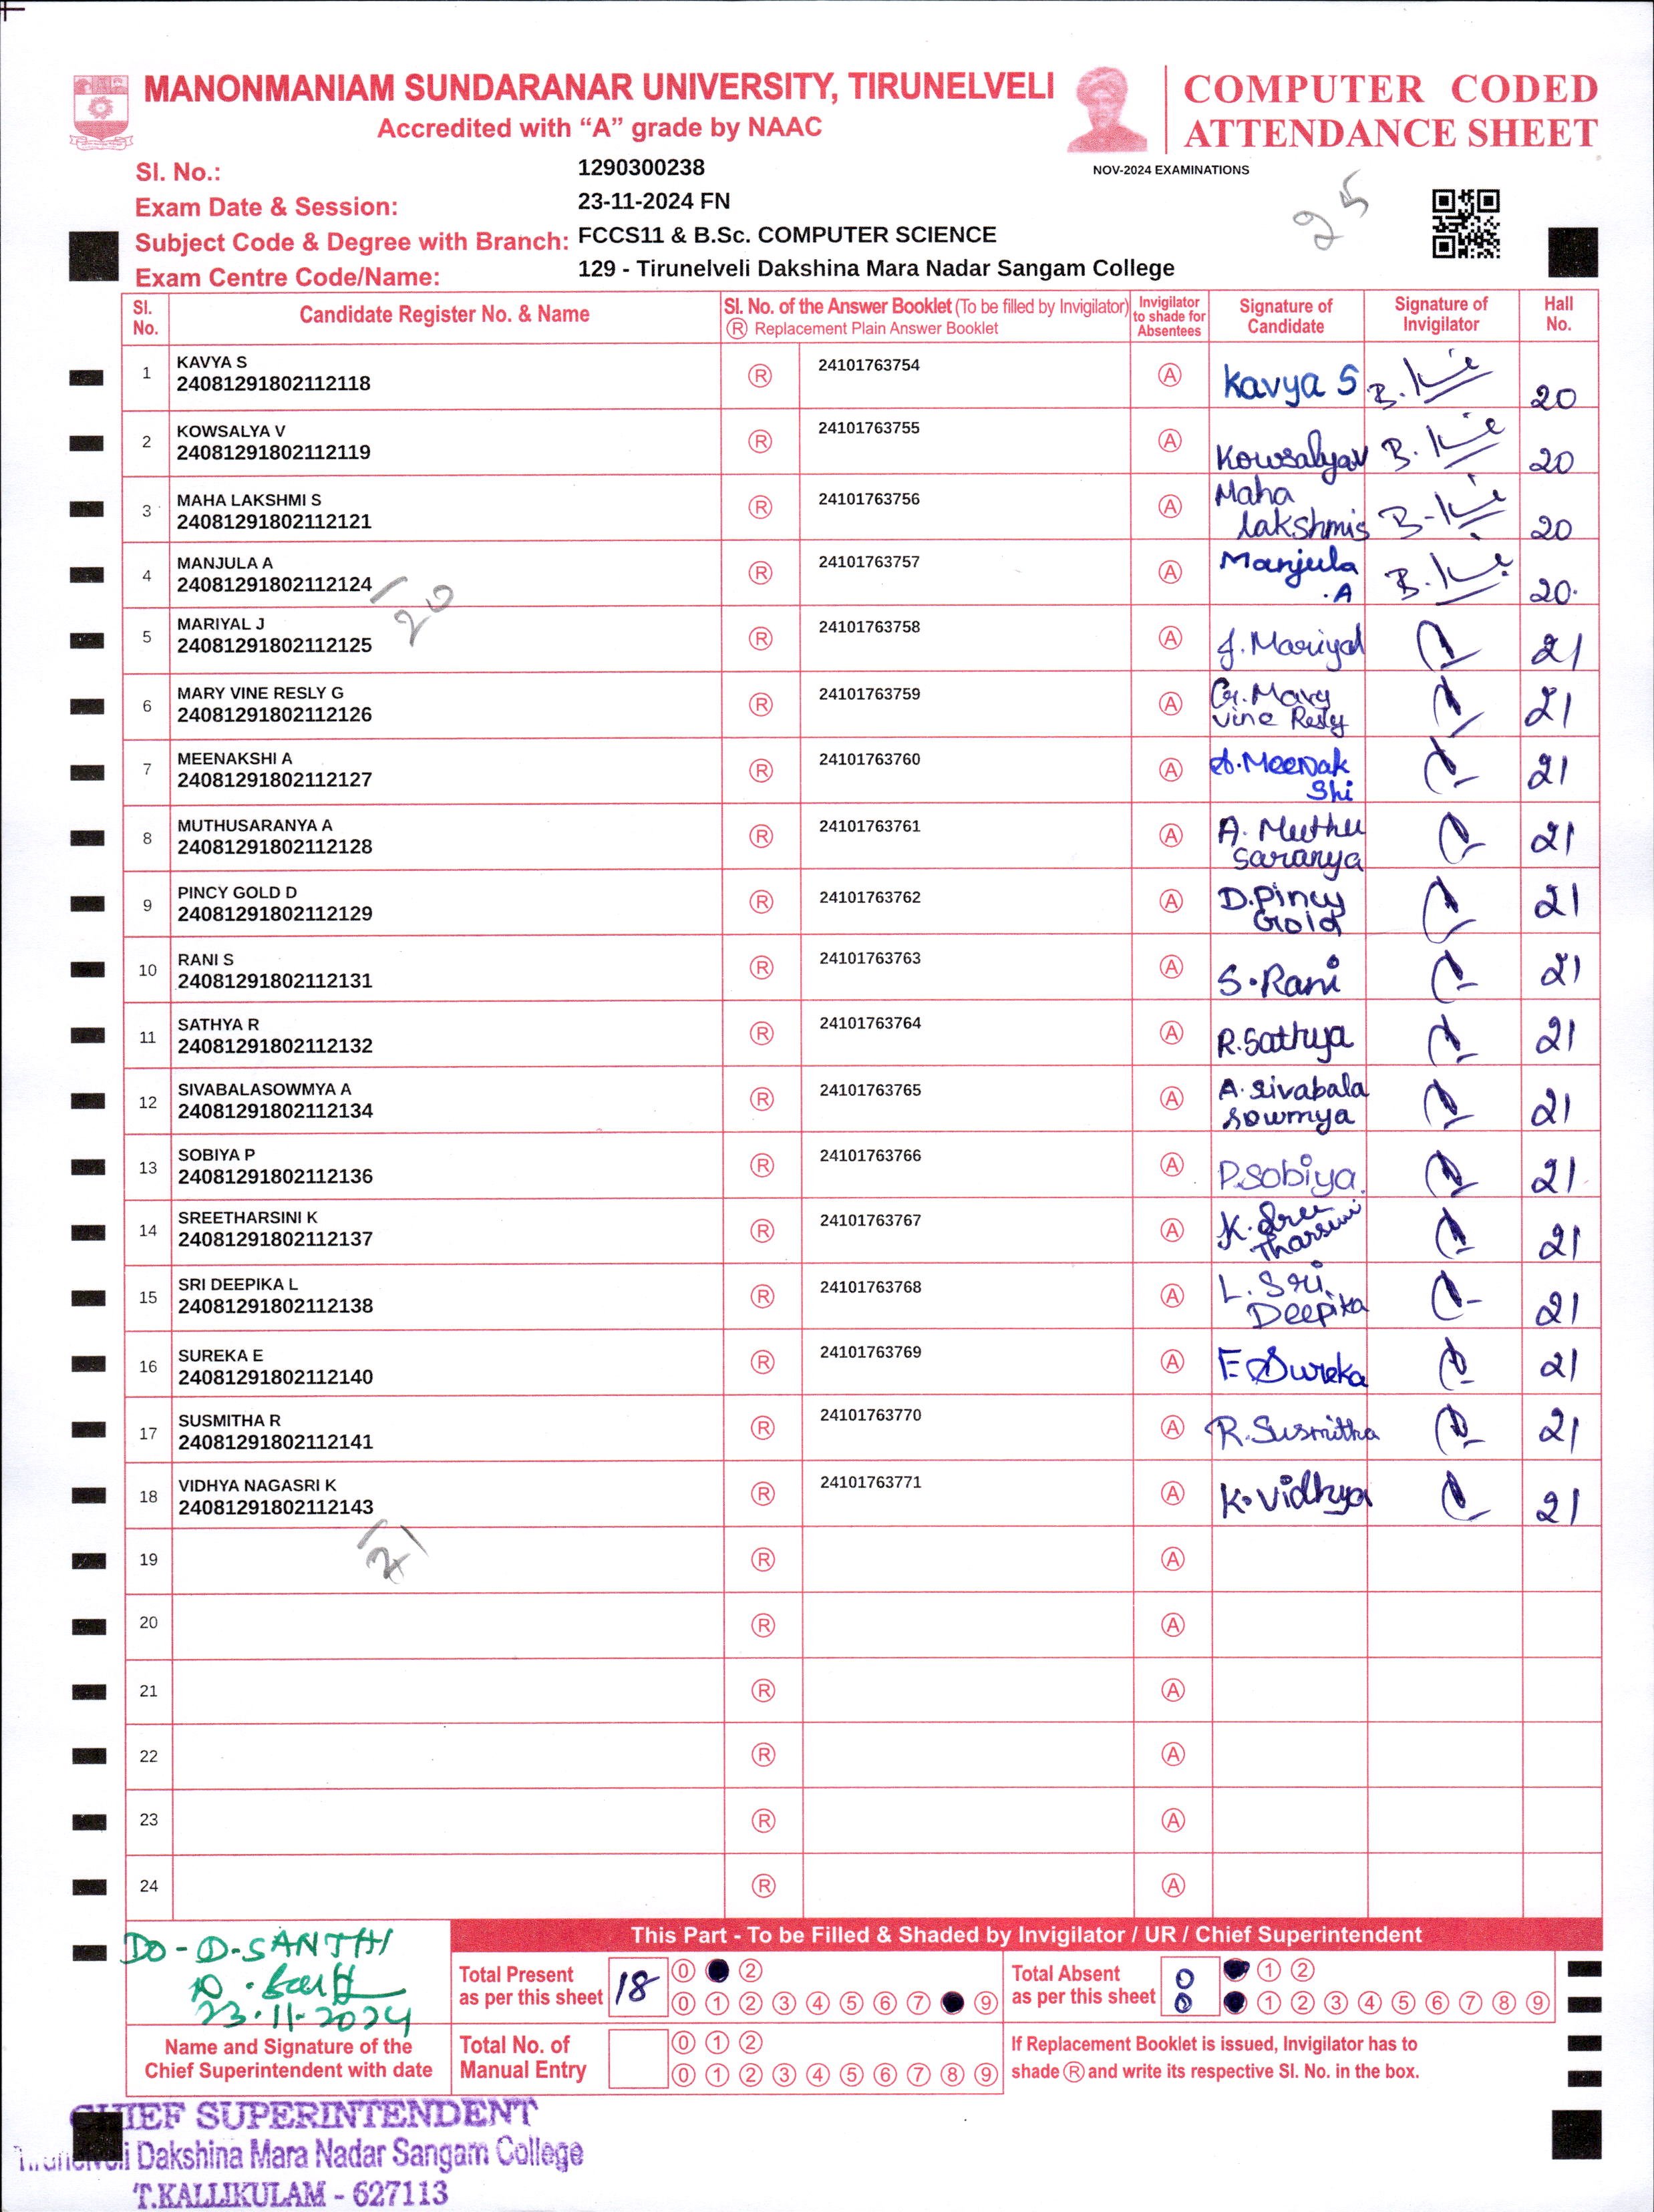 MANONMANIAM SUNDARANAR UNIVERSITY, TIRUNELVELI
Accredited with “A” grade by NAAC
COMPUTER CODED
ATTENDANCE SHEET
NOV-2024 EXAMINATIONS
25
Sl. No.: 1290300238
Exam Date & Session: 23-11-2024 FN
Subject Code & Degree with Branch: FCCS11 & B.Sc. COMPUTER SCIENCE
Exam Centre Code/Name: 129 - Tirunelveli Dakshina Mara Nadar Sangam College
Sl. No. Candidate Register No. & Name Sl. No. of the Answer Booklet (To be filled by Invigilator) Ⓡ Replacement Plain Answer Booklet Invigilator to shade for Absentees Signature of Candidate Signature of Invigilator Hall No.
1 KAVYA S 24081291802112118 Ⓡ 24101763754 Ⓐ Kavya S 20
2 KOWSALYA V 24081291802112119 Ⓡ 24101763755 Ⓐ Kowsalya V 20
3 MAHA LAKSHMI S 24081291802112121 Ⓡ 24101763756 Ⓐ Maha lakshmi s 20
4 MANJULA A 24081291802112124 Ⓡ 24101763757 Ⓐ Manjula .A 20.
20
5 MARIYAL J 24081291802112125 Ⓡ 24101763758 Ⓐ J. Mariyal 21
6 MARY VINE RESLY G 24081291802112126 Ⓡ 24101763759 Ⓐ G. Mary Vine Resly 21
7 MEENAKSHI A 24081291802112127 Ⓡ 24101763760 Ⓐ A. Meenak Shi 21
8 MUTHUSARANYA A 24081291802112128 Ⓡ 24101763761 Ⓐ A. Muthu Saranya 21
9 PINCY GOLD D 24081291802112129 Ⓡ 24101763762 Ⓐ D. Pincy Gold 21
10 RANI S 24081291802112131 Ⓡ 24101763763 Ⓐ S. Rani 21
11 SATHYA R 24081291802112132 Ⓡ 24101763764 Ⓐ R. Sathya 21
12 SIVABALASOWMYA A 24081291802112134 Ⓡ 24101763765 Ⓐ A. Sivabala Sowmya 21
13 SOBIYA P 24081291802112136 Ⓡ 24101763766 Ⓐ P. Sobiya. 21
14 SREETHARSINI K 24081291802112137 Ⓡ 24101763767 Ⓐ K. Sree Tharsini 21
15 SRI DEEPIKA L 24081291802112138 Ⓡ 24101763768 Ⓐ L. Sri Deepika 21
16 SUREKA E 24081291802112140 Ⓡ 24101763769 Ⓐ E. Sureka 21
17 SUSMITHA R 24081291802112141 Ⓡ 24101763770 Ⓐ R. Susmitha 21
18 VIDHYA NAGASRI K 24081291802112143 Ⓡ 24101763771 Ⓐ K. Vidhya 21
21
19 Ⓡ Ⓐ
20 Ⓡ Ⓐ
21 Ⓡ Ⓐ
22 Ⓡ Ⓐ
23 Ⓡ Ⓐ
24 Ⓡ Ⓐ
This Part - To be Filled & Shaded by Invigilator / UR / Chief Superintendent
DO - D-SANTHI
23.11.2024
Name and Signature of the
Chief Superintendent with date
Total Present as per this sheet 18 0 2
0 1 2 3 4 5 6 7 9
Total Absent as per this sheet 0 0 1 2
1 2 3 4 5 6 7 8 9
Total No. of Manual Entry 0 1 2
0 1 2 3 4 5 6 7 8 9
If Replacement Booklet is issued, Invigilator has to
shade Ⓡ and write its respective Sl. No. in the box.
CHIEF SUPERINTENDENT
Tirunelveli Dakshina Mara Nadar Sangam College
T.KALLIKULAM - 627113